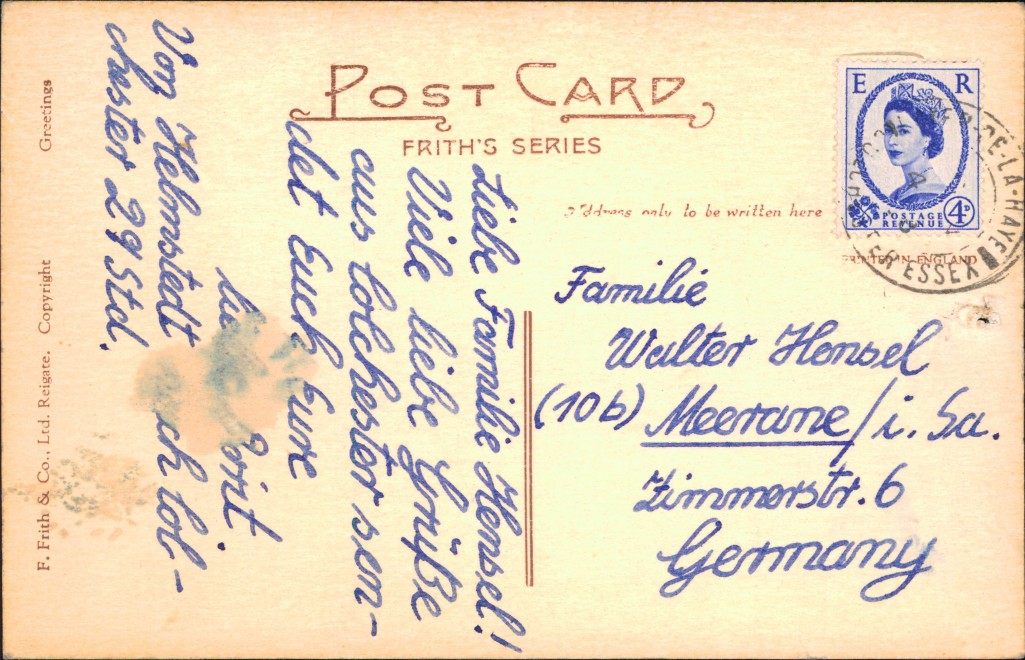 POST CARD
FRITH'S SERIES
Address only to be written here
E R
POSTAGE
REVENUE
4D
PRINTED IN ENGLAND
DE-LA-HAYE
ESSEX
Familie
Walter Hensel
(10b) Meerane/i. Sa.
Zimmerstr. 6
Germany
Liebe Familie Hensel!
Viele liebe Grüße
aus Colchester sen-
det Euch Eure
Dorit.
Von Helmstedt
nach Col-
chester 29 Std.
F. Frith & Co., Ltd. Reigate. Copyright Greetings